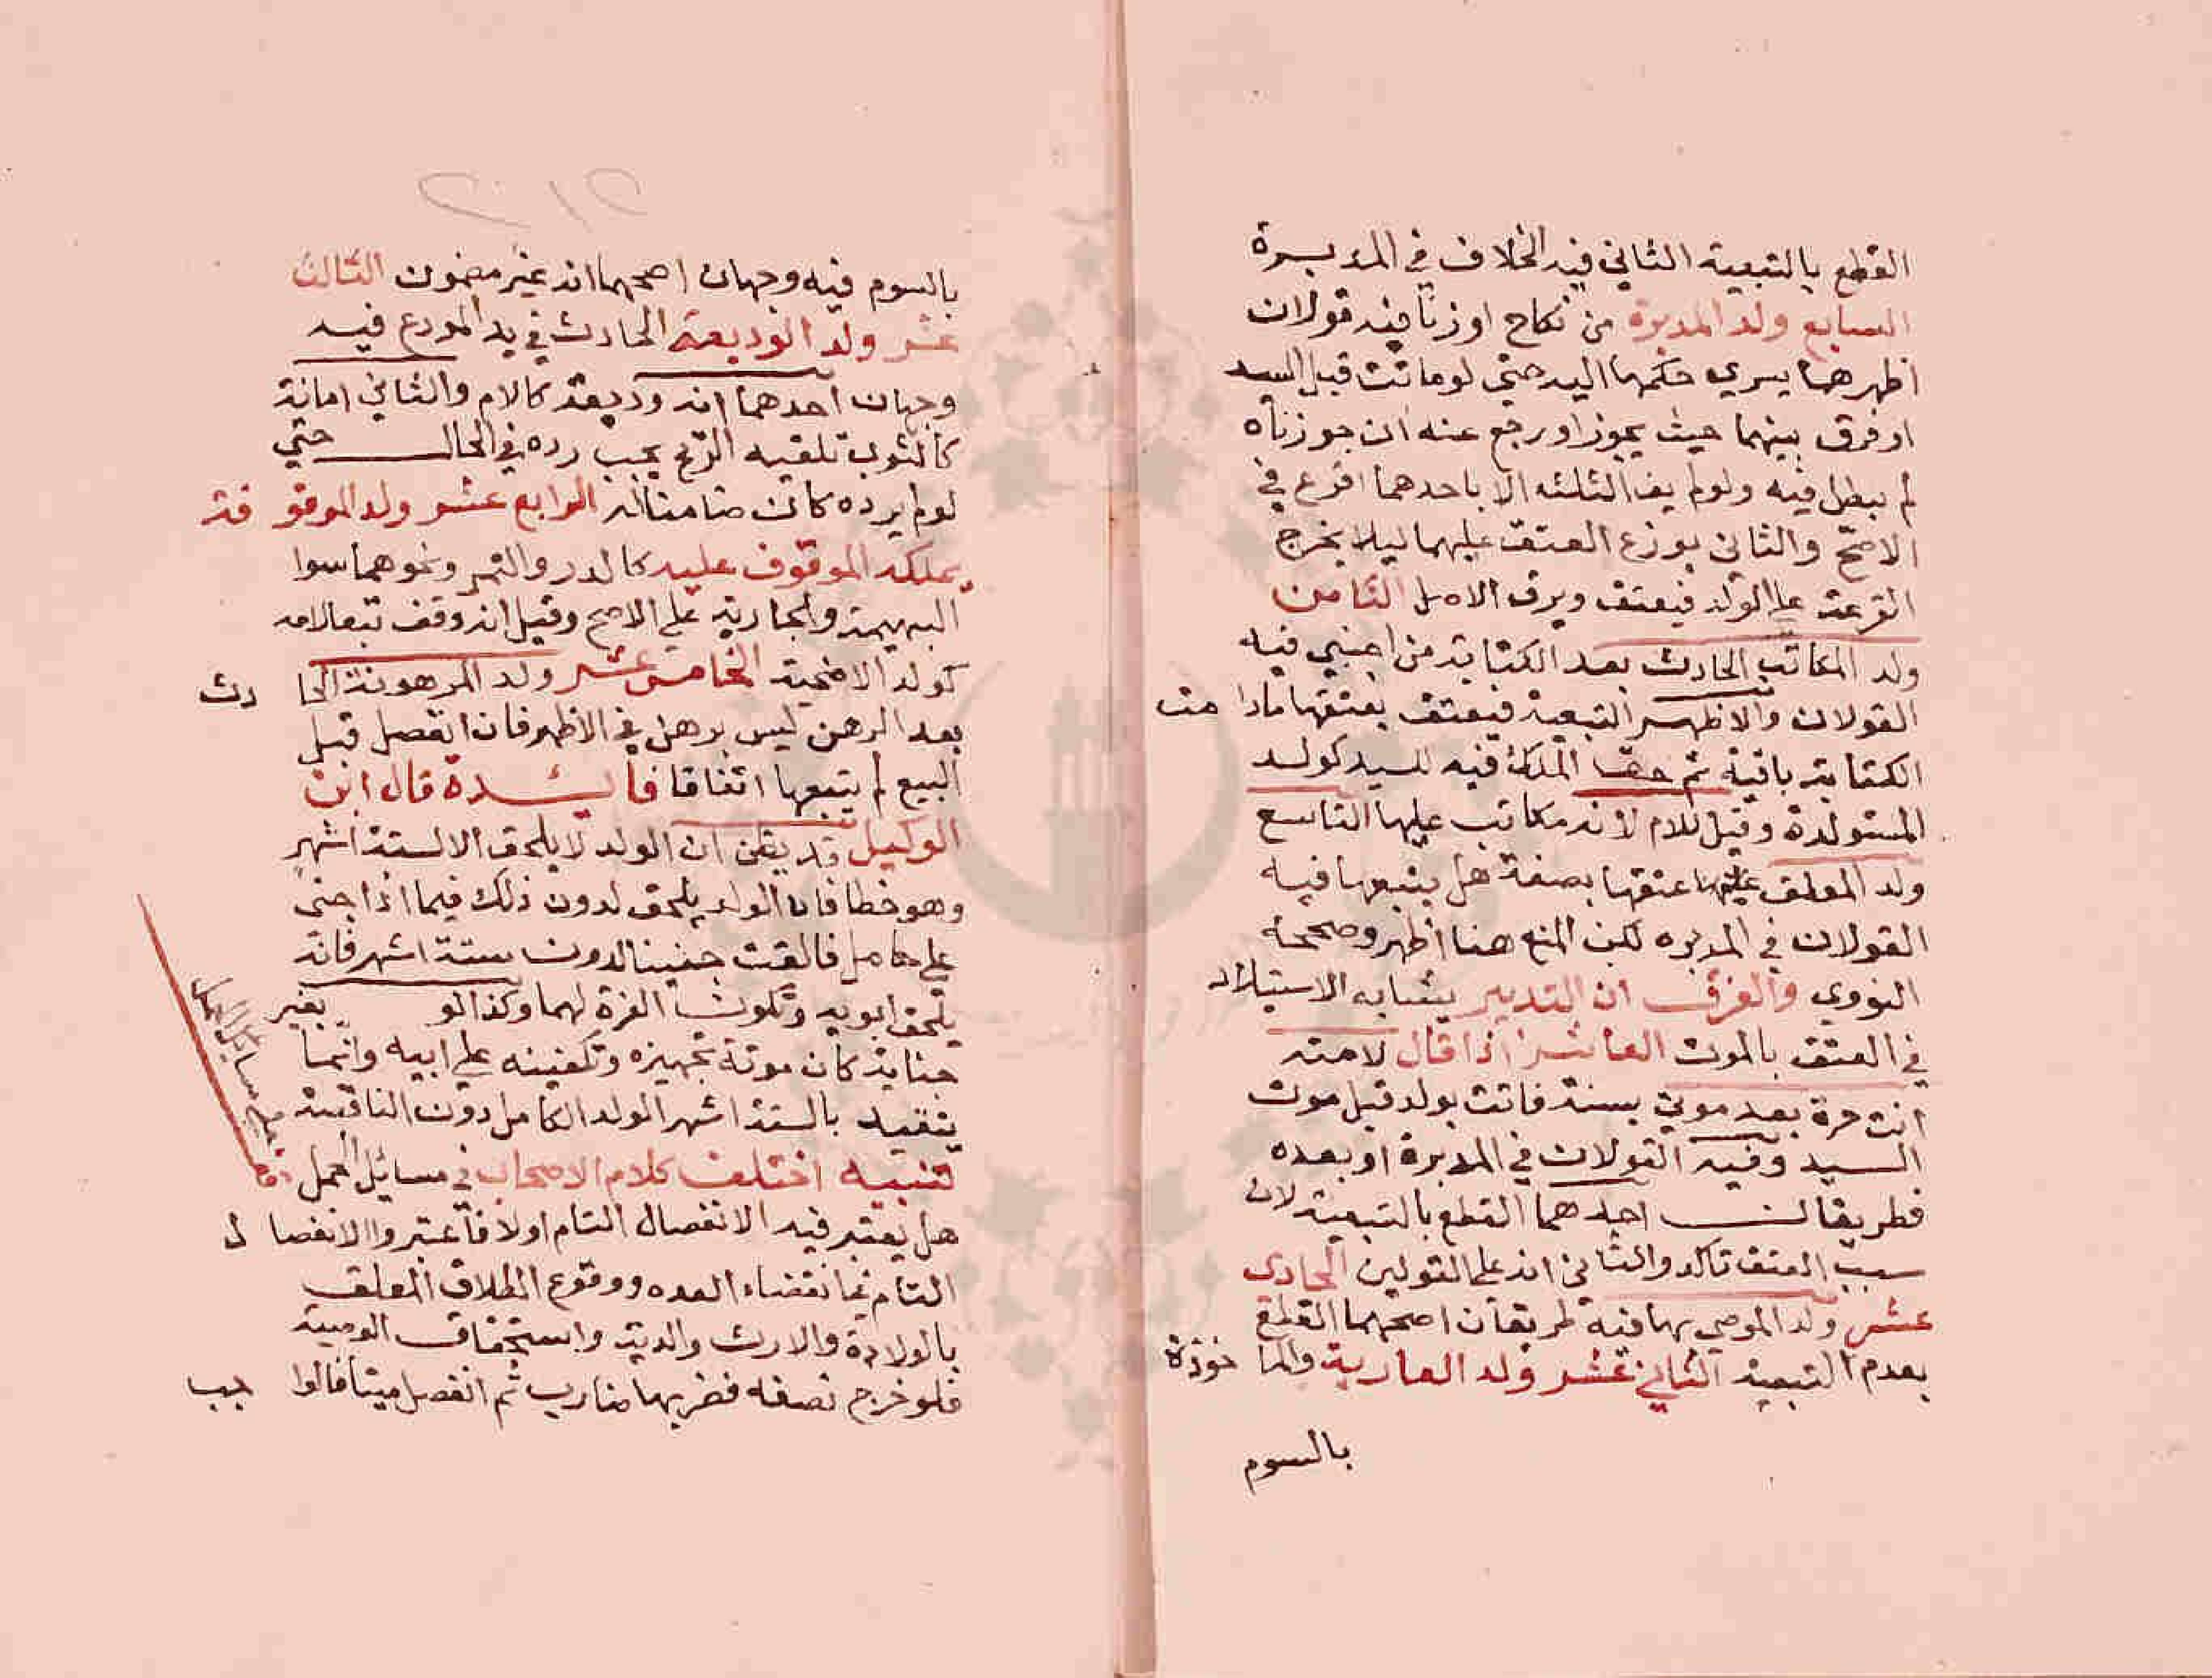 القطع بالتبعية الثاني فيه الخلاف في المدبرة
السابع ولد المدبرة من نكاح او زنا فيه قولان
اظهرهما يسري حكمها اليه حتي لو ماتت قبل السيد
او فرق بينهما حيث يجوز او رجع عنه ان جوزناه
لم يبطل فيه ولو لم يف الثلث الا باحدهما اقرع في
الاصح والثاني يوزع العتق عليهما ليلا يخرج
القرعة علي الولد فيعتق ويرق الاصل الثامن
ولد المكاتب الحادث بعد الكتابة من اجنبي فيه
القولان والاظهر التبعية فيعتق بعتقها مادا مت
الكتابة باقية ثم حق الملك فيه للسيد كولد
المستولدة وقيل للام لانه مكاتب عليها التاسع
ولد المعلق عليها عتقها بصفة هل يتبعها فيه
القولان في المدبره لكن المنع هنا اظهر وصححه
النووي والفرق ان التدبير يشابه الاستيلاد
في العتق بالموت العاشر اذا قال لامته
انت حرة بعد موتي بسنة فاتت بولد قبل موت
السيد وفيه القولان في المدبرة او بعده
فطريقان احدهما القطع بالتبعية لان
سبب العتق تاكد والثاني انه علي القولين الحادي
عشر ولد الموصي بها فيه طريقان اصحهما القطع
بعدم التبعية الثاني عشر ولد العارية والما خوذة
بالسوم
بالسوم فيه وجهان اصحهما انه غير مضمون الثالث
عشر ولد الوديعة الحادث في يد المودع فيه
وجهان احدهما انه وديعة كالام والثاني امانة
كالثوب تلقيه الريح يجب رده في الحال حتي
لو لم يرده كان ضامنا له الرابع عشر ولد الموقو فة
يملكه الموقوف عليه كالدر والثمر ونحوهما سوا
البهيمة والجارية علي الاصح وقيل انه وقف تبعا لامه
كولد الاضحية الخامس عشر ولد المرهونة الحا دث
بعد الرهن ليس برهن في الاظهر فان انفصل قبل
البيع لم يتبعها اتفاقا فائدة قال ابن
الوكيل قد يظن ان الولد لا يلحق الا لستة اشهر
وهو خطا فان الولد يلحق لدون ذلك فيما اذا جني
علي حامل فالقت جنينا لدون ستة اشهر فانه
يلحق ابويه وتكون الغرة لهما وكذا لو بغير
جناية كان مونة تجهيزه وتكفينه علي ابيه وانما
يتقيد بالستة اشهر الولد الكامل دون الناقص
تنبيه اختلف كلام الاصحاب في مسائل الحمل
هل يعتبر فيه الانفصال التام اولا فاعتبروا الانفصا ل
التام في انقضاء العده ووقوع الطلاق المعلق
بالولادة والارث والدية واستحقاق الوصية
فلو خرج نصفه فضربها ضارب ثم انفصل ميتا فالوا جب